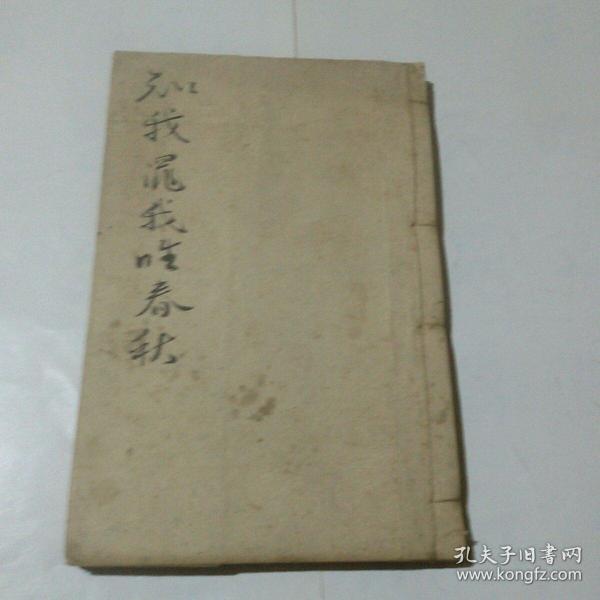 知我罪我唯春秋
孔夫子旧書网
www.kongfz.com